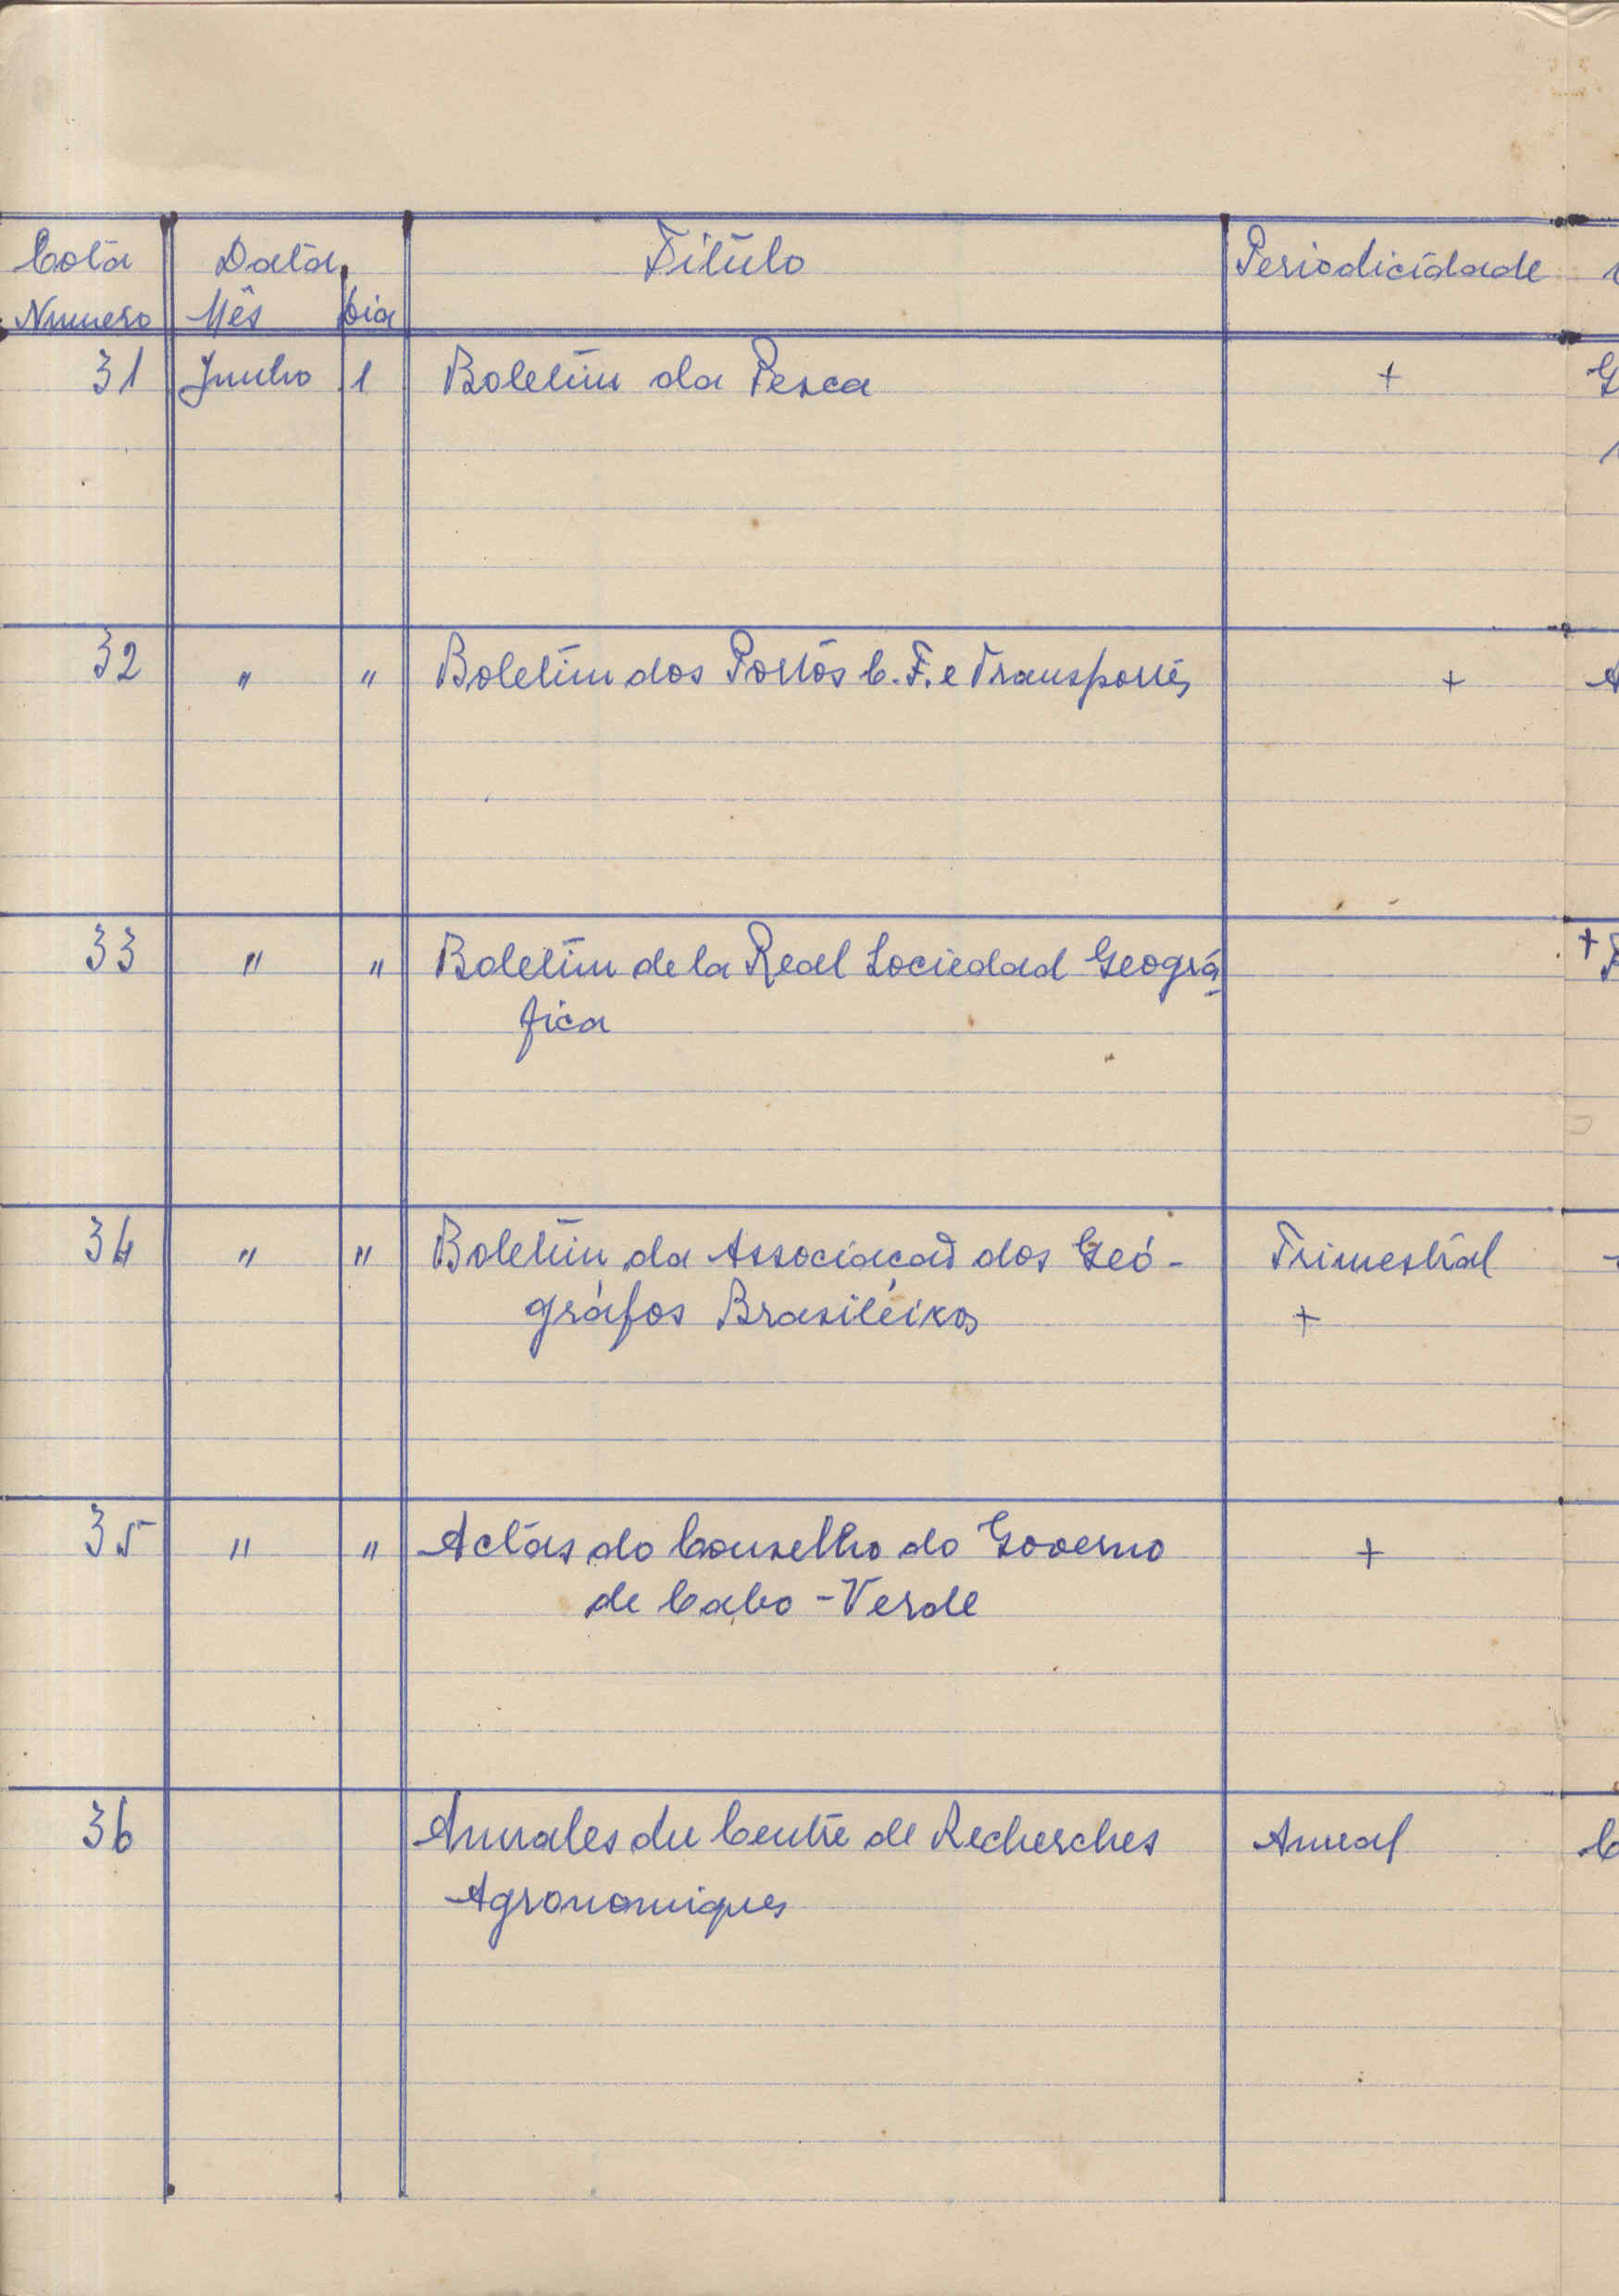 Cota Data Título Periodicidade
Numero Mês Dia
31 Junho 1 Boletim da Pesca + G
32 " " Boletim dos Portos C. F. e Transportes + A
33 " " Boletim de la Real Sociedad Geográ- +
fica
34 " " Boletim da Associaçaõ dos Geó- Trimestral
gráfos Brasileiros +
35 " " Actas do Conselho do Governo +
de Cabo-Verde
36 Annales du Centre de Recherches Anual C
Agronomiques